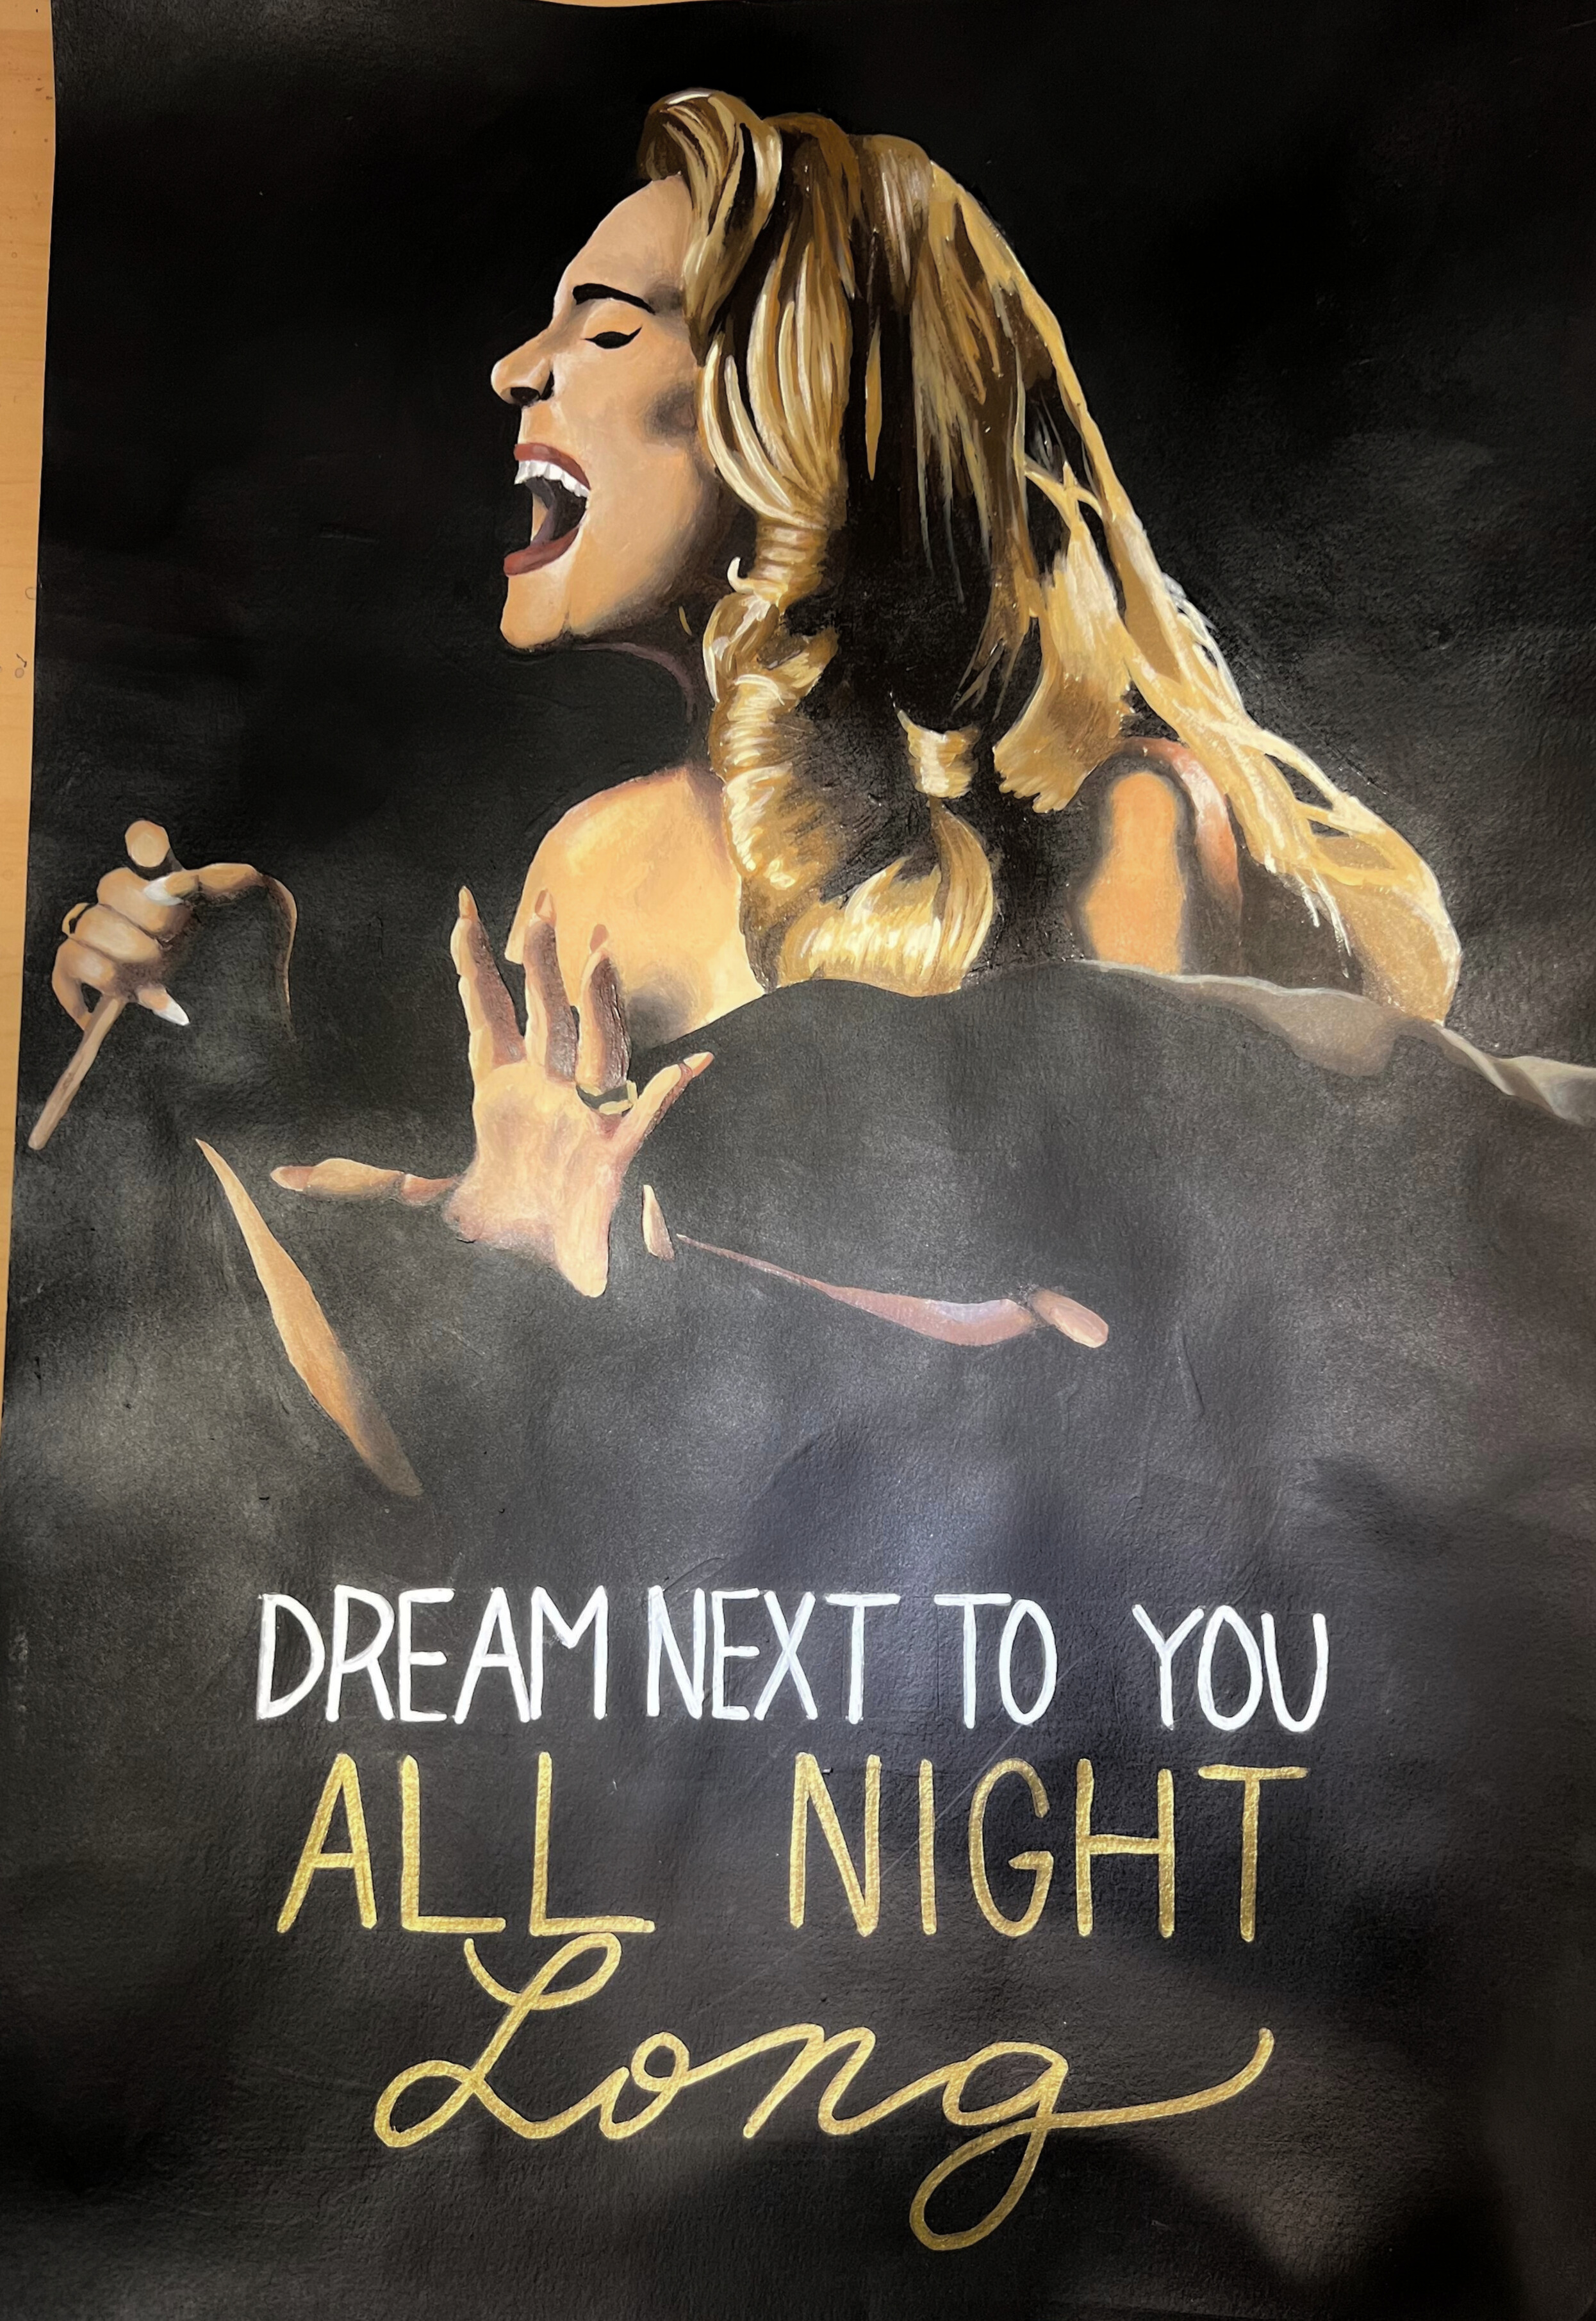 DREAM NEXT TO YOU
ALL NIGHT
Long